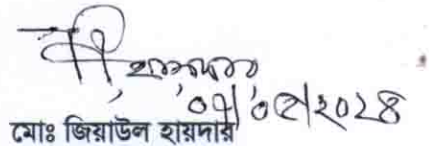 ০৭/০৫/২০২৪
মোঃ জিয়াউল হায়দার